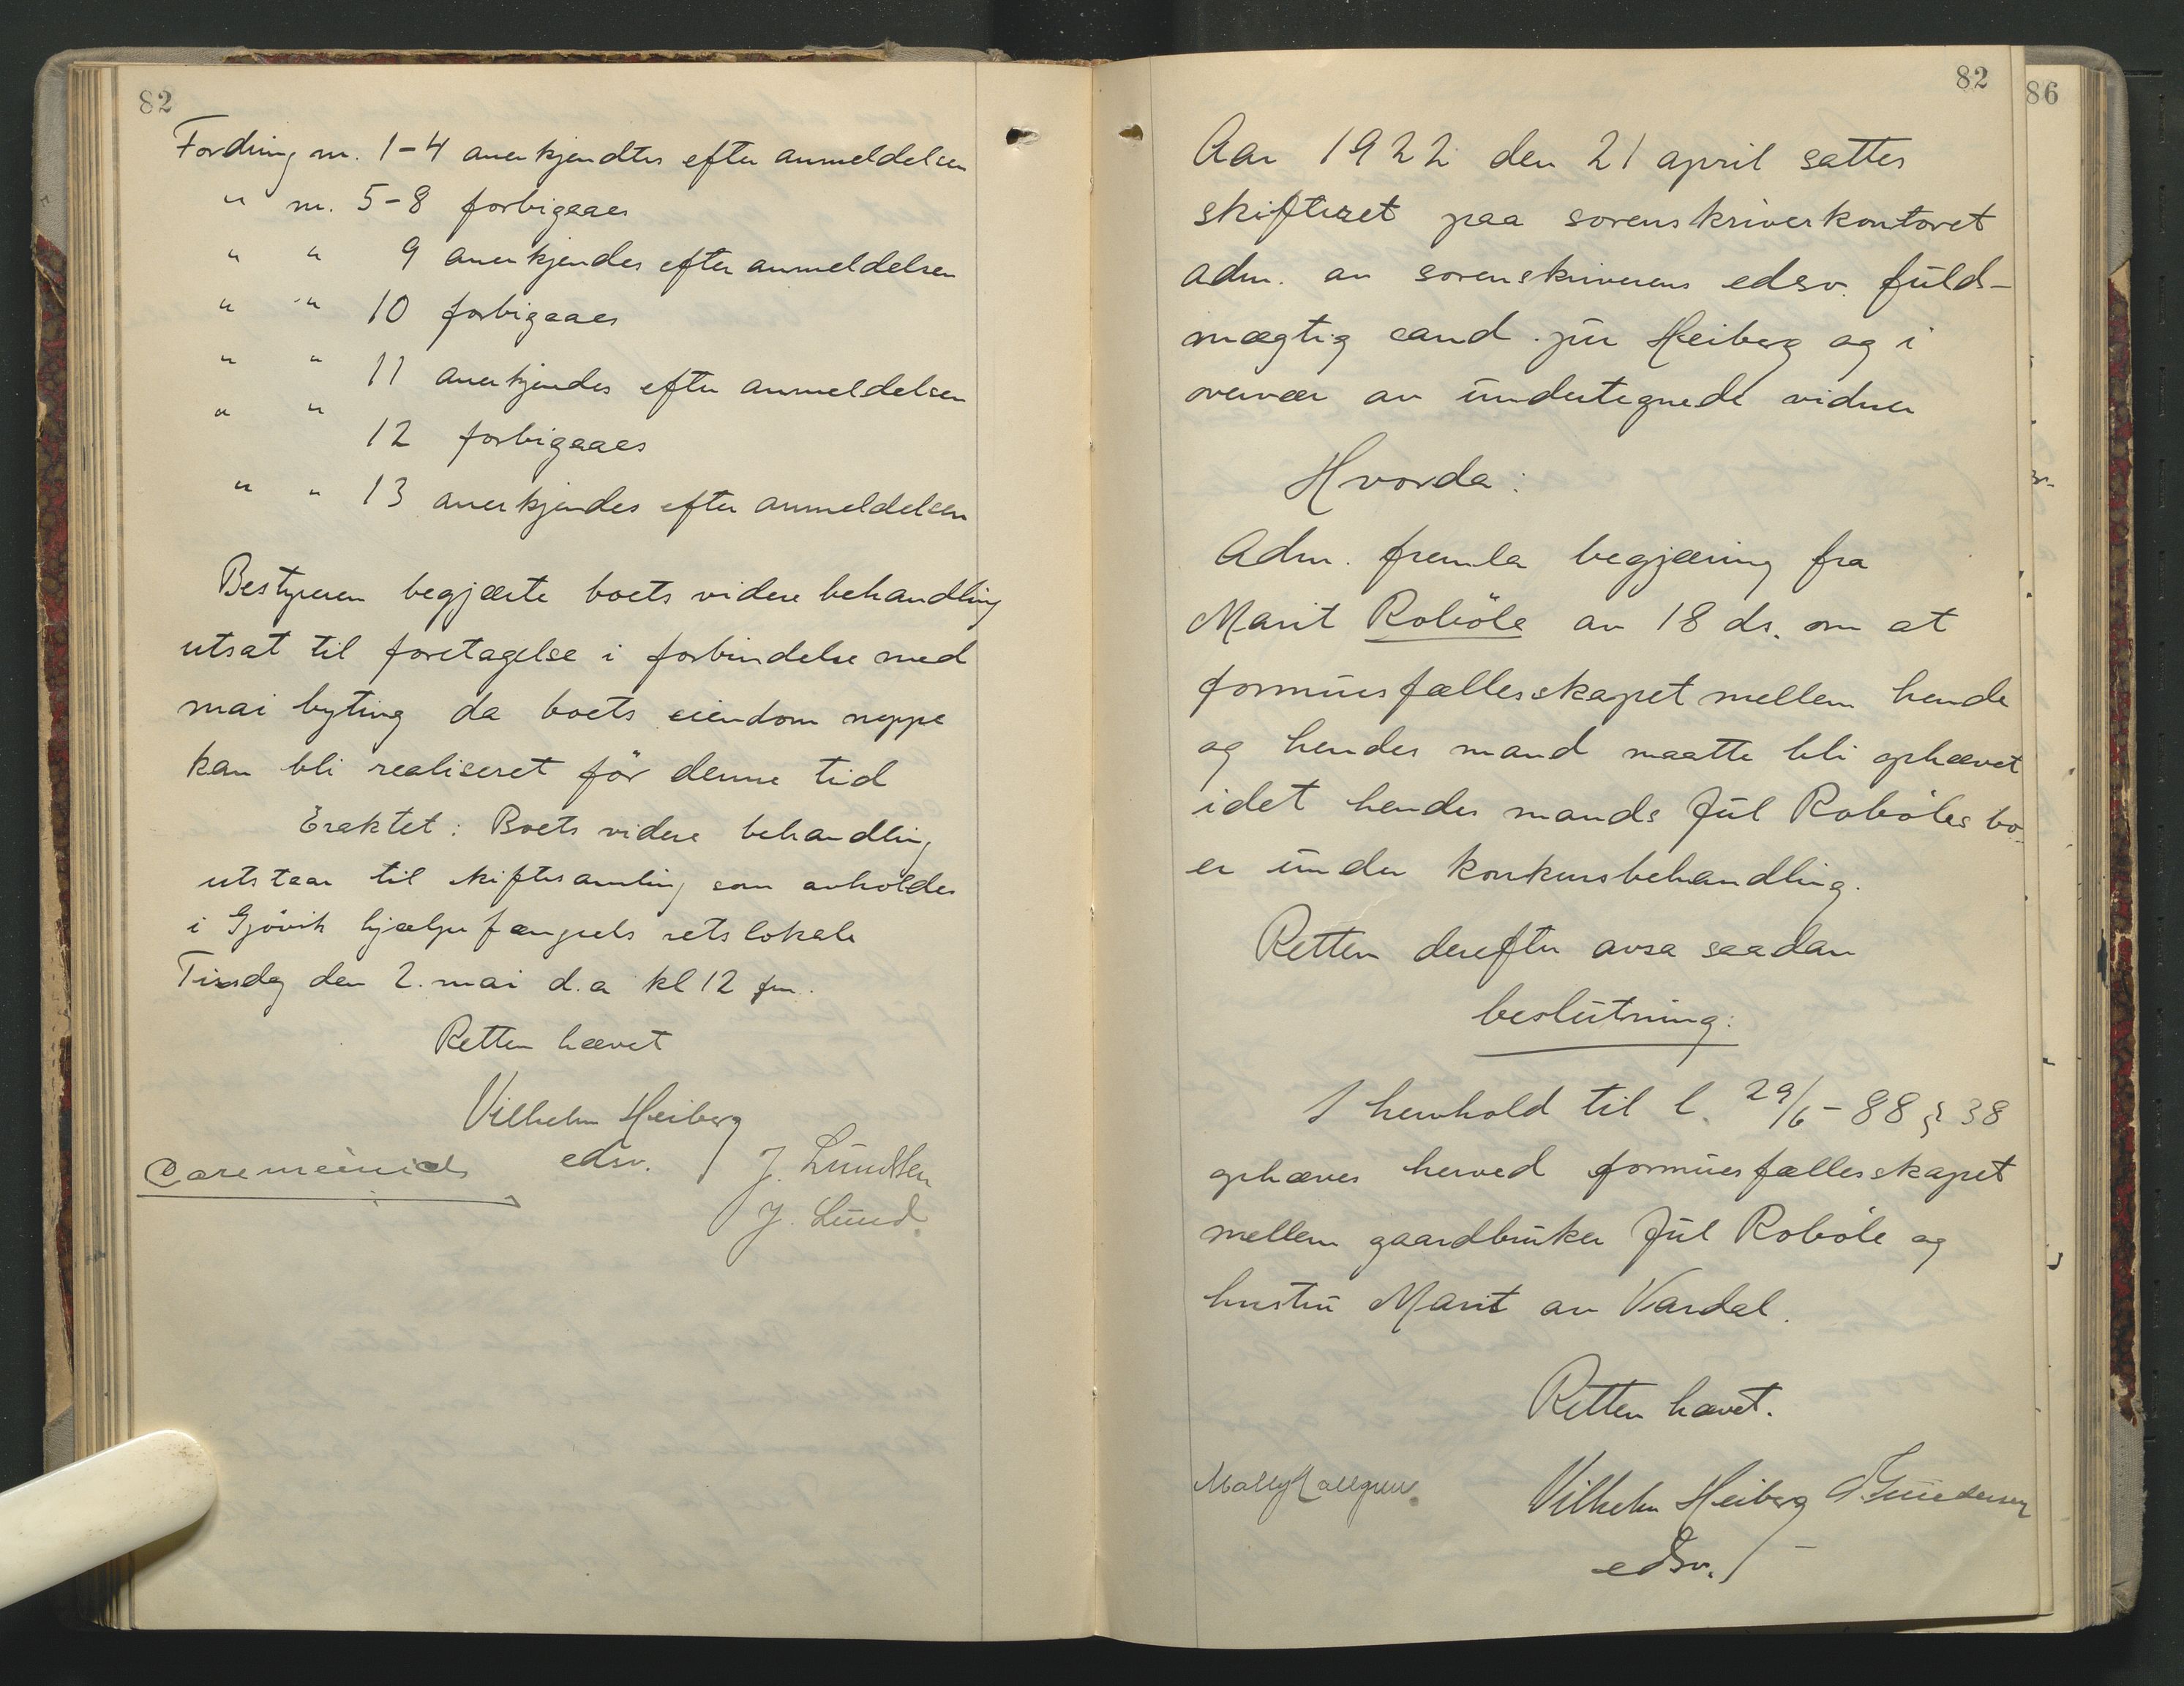 82
Fordring nr. 1-4 anerkjendtes efter anmeldelsen
" nr. 5-8 forbigaaes
" " 9 anerkjendes efter anmeldelsen
" " 10 forbigaaes
" " 11 anerkjendes efter anmeldelsen
" " 12 forbigaaes
" " 13 anerkjendes efter anmeldelsen
Bestyreren begjærte boets videre behandling
utsat til foretagelse i forbindelse med
mai byting da boets eiendom neppe
kan bli realiseret før denne tid
Eraktet: Boets videre behandling
utstaar til skiftesamling som avholdes
i Gjövik hjælpefængsels retslokale
Tirsdag den 2. mai d.a kl 12 fm.
Retten hævet
Vilhelm Heiberg
edsv.
J. Lund
82
86
Aar 1922 den 21 april sattes
skifteret paa sorenskriverkontoret
adm. av sorenskriverens edsv. fuld-
mægtig cand. jur Heiberg og i
overvær av undertegnede vidner
Hvorda:
Adm. fremla begjæring fra
Marit Roböle av 18 ds. om at
formuesfællesskapet mellem hende
og hendes mand maatte bli ophævet
idet hendes mands Jul Roböles bo
er under konkursbehandling.
Retten derefter avsa saadan
beslutning:
I henhold til l. 29/6-88 § 38
ophæves herved formuesfællesskapet
mellem gaardbruker Jul Roböle og
hustru Marit av Vardal.
Retten hævet.
Vilhelm Heiberg
edsv.